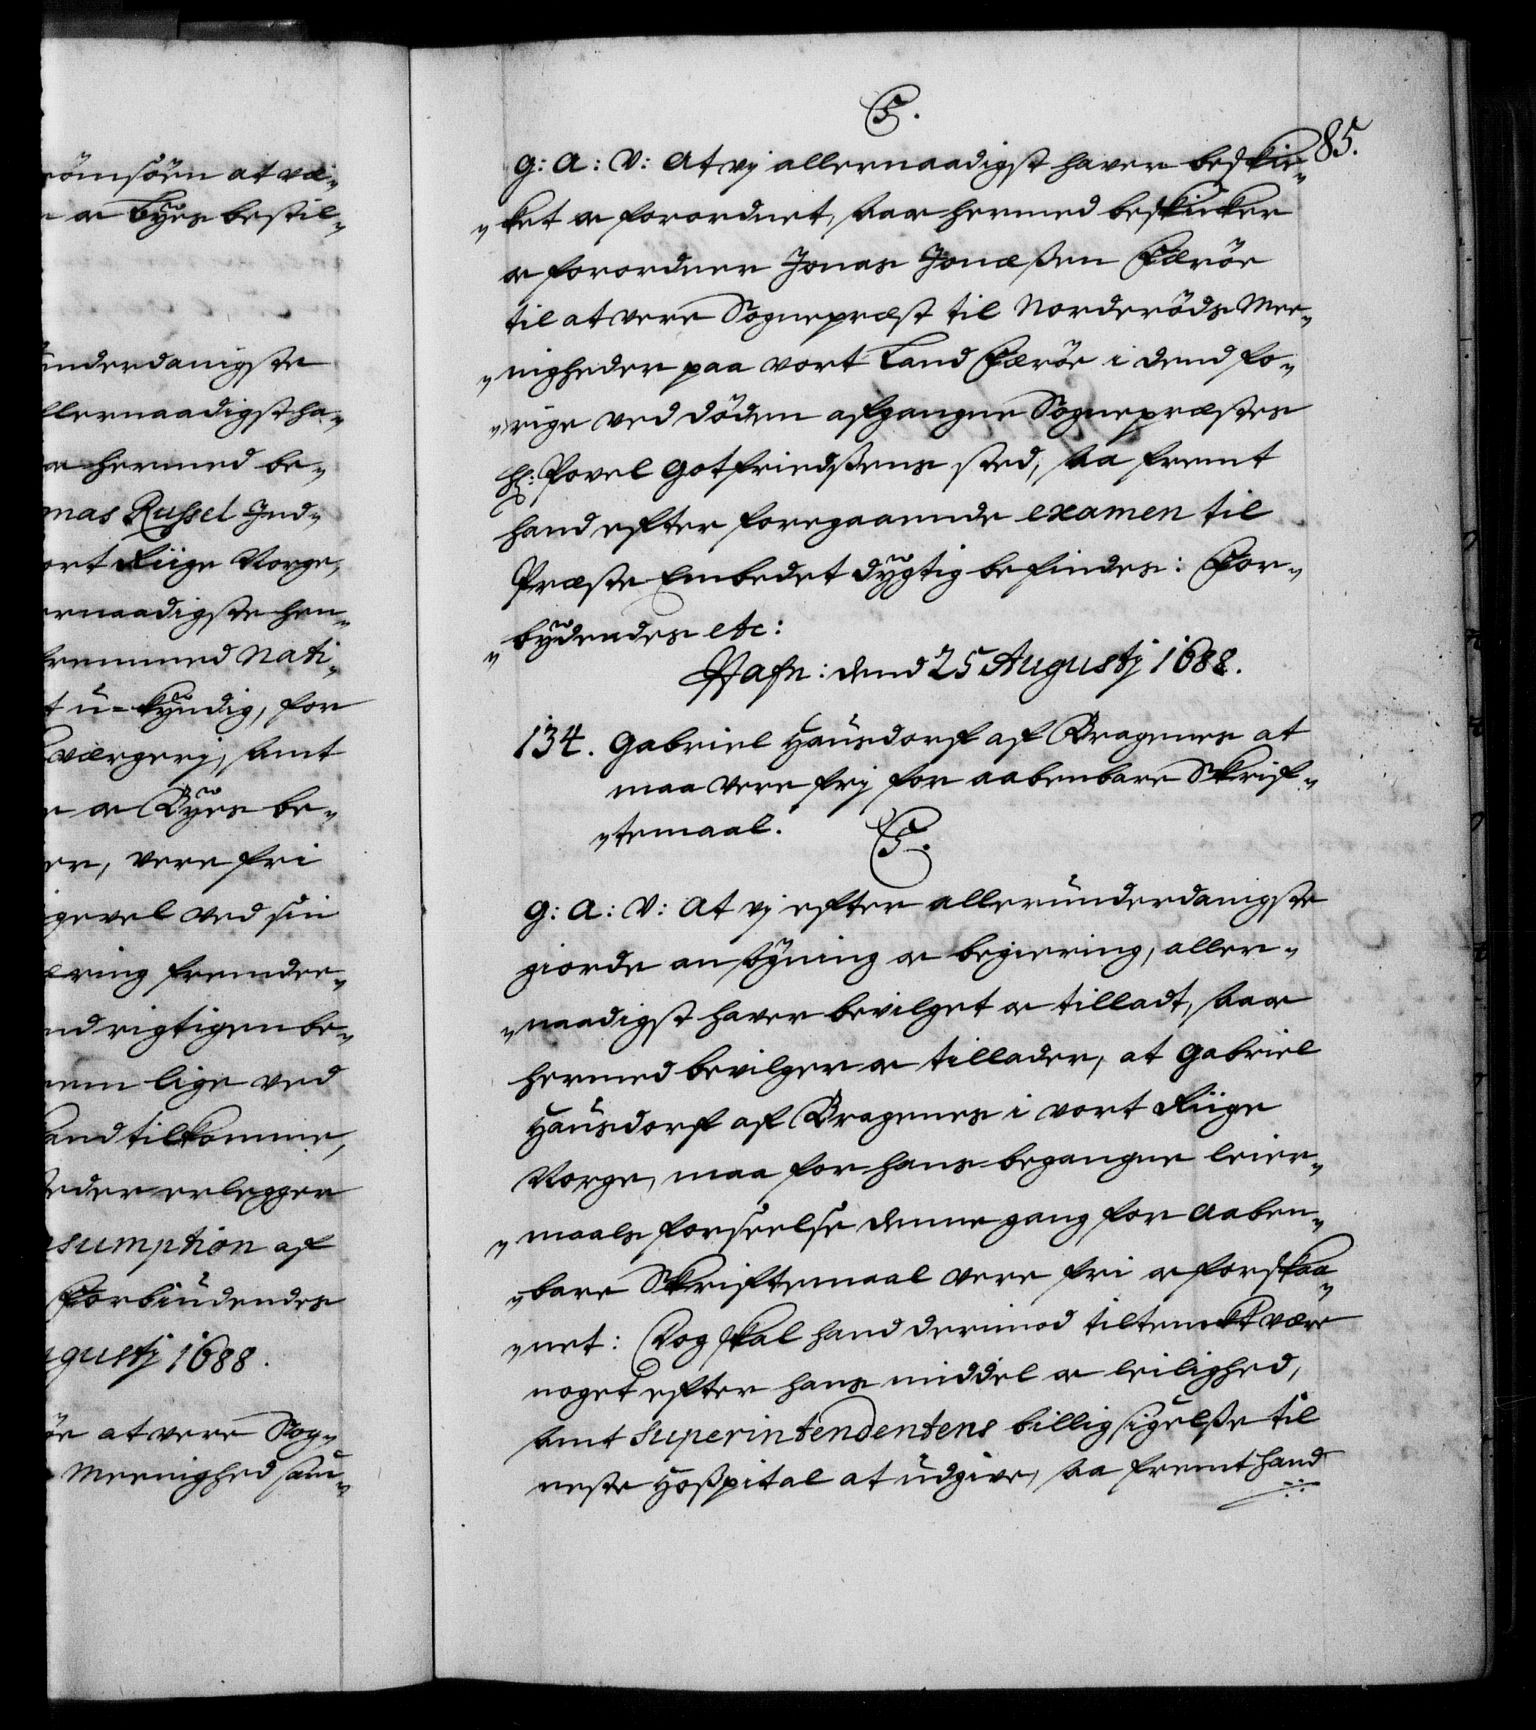 römsöen at væ-
r oc Byes bestil-
underdanigste
llernaadigst ha-
oc hermed be-
mas Russel Ind-
ort Riige Norge,
ernaadigste hen-
fremmed Nati-
t u-kyndig, for
værgerj, samt
e oc Byes be-
er, vere fri
gevel ved sin
æring fremdee-
nd rigtigen be-
nem lige ved
and tilkomme,
eder erlegger
sumption af
Forbiudendes
gustj 1688.
öe at vere Sog-
Meenighed sam-
C5.
85.
G: A: V: At vj allernaadigst haver beskic-
-ket oc forordnet, saa oc hermed beskicker
oc forordner Jonas Jonæßen Færöe
til at vere Sognepræst til Norderöds Mee-
-nigheder paa vort Land Færöe i dend fo-
-rige ved döden afgangne Sognepræstes
Hr: Povel Gotfriedßens sted, saa fremt
hand efter foregaaende examen til
Præste Embedet dygtig befindes: For-
-bydendes etc:
Hafn: dend 25 Augustj 1688.
134. Gabriel Hausdorf af Bragenes at
maa vere frj for aabenbare Skrif-
-temaal.
C5.
G: A: V: At vj efter allerunderdanigste
giorde ansögning oc begiering, aller-
-naadigst haver bevilget oc tilladt, saa oc
hermed bevilger oc tillader, at Gabriel
Hausdorf af Bragenes i vort Riige
Norge, maa for hans begangne leier-
-maals forseelse denne gang for aaben-
-bare Skriftemaal vere fri oc forskaa-
-net: Dog skal hand derimod tiltenckt være
noget efter hans middel oc leilighed,
samt Superintendentens billigsigelße til
neste Hoßpital at udgive, saa fremt hand